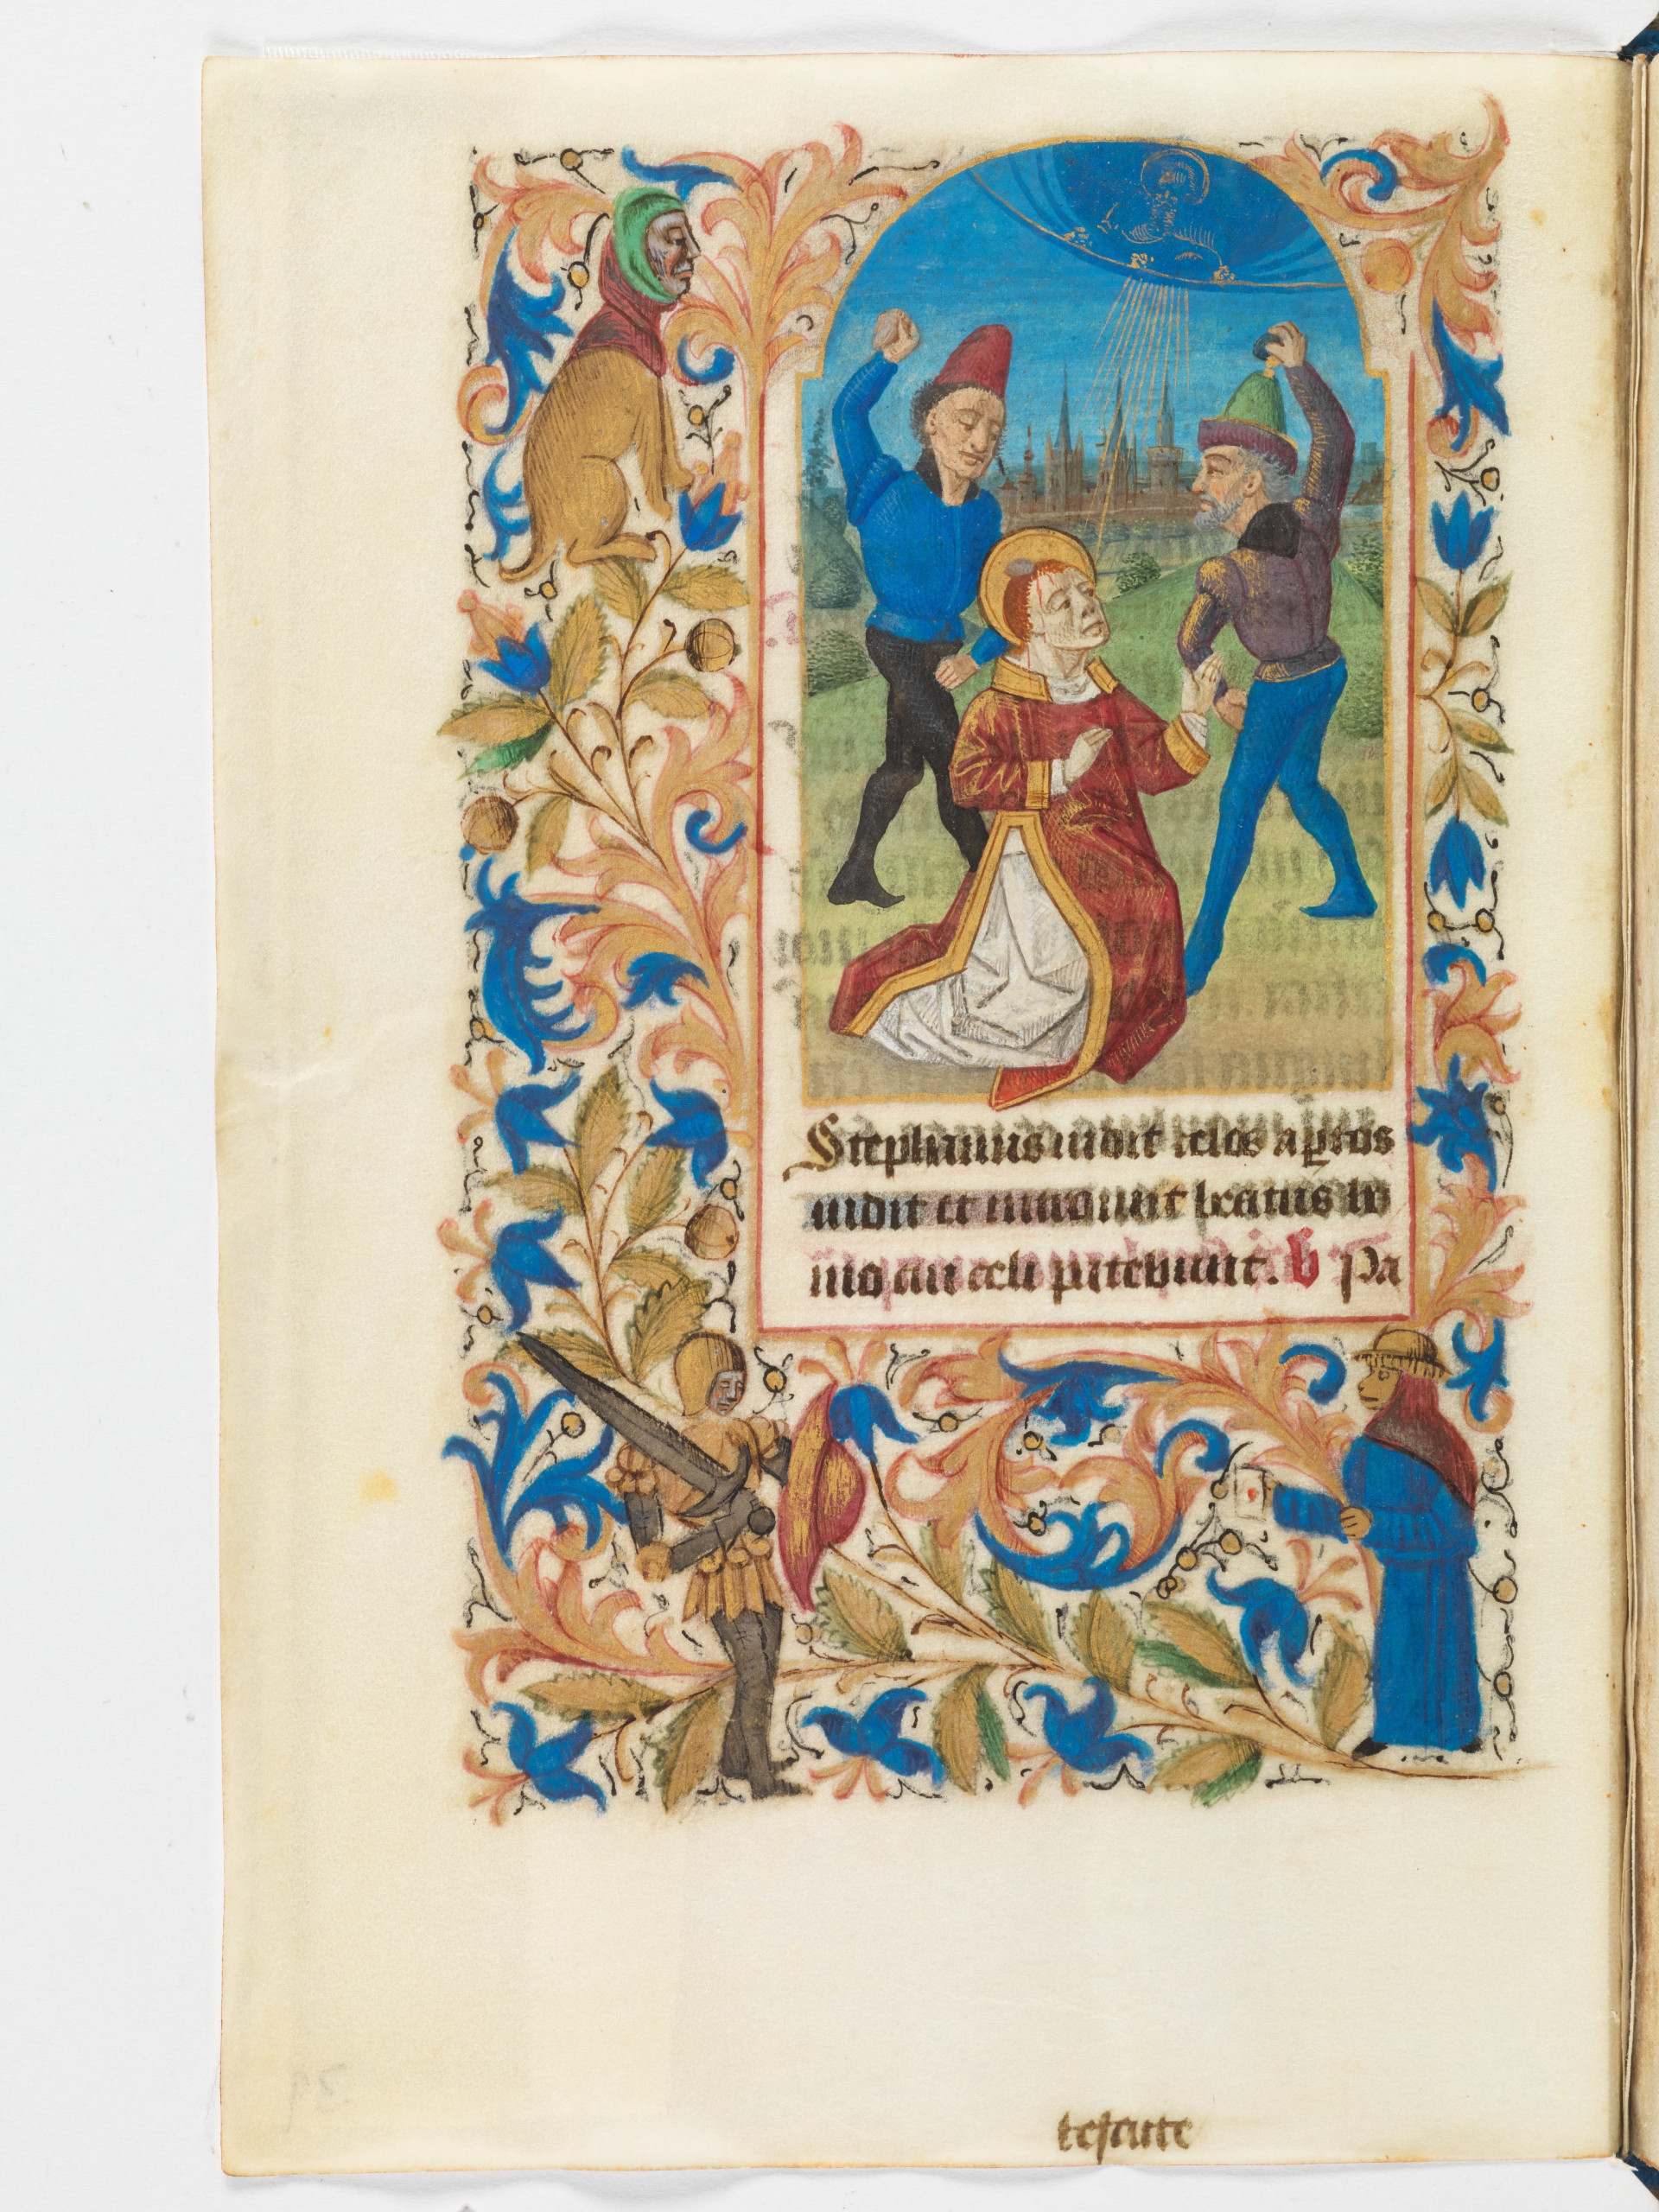 Stephanus uidit celos aꝑtos
uidit et introiuit beatus ho
mo cui celi patebunt. v Pa
testute